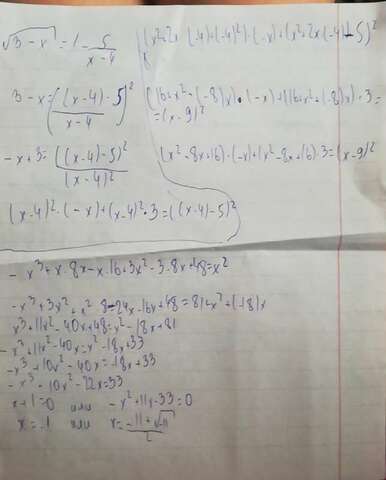 √3-x = 1 - 5/(x-4)
3-x = ((x-4)-5/(x-4))²
-x+3 = ((x-4)-5)²/(x-4)²
(x-4)²·(-x)+(x-4)²·3=((x-4)-5)²
(x²+2x·(-4)+(-4)²)·(-x)+(x²+2x·(-4)
(16+x²+(-8)x)·(-x)+(16+x²+(-8)x)·3=
=(x-9)²
(x²-8x+16)·(-x)+(x²-8x+16)·3=(x-9)²
-x³+x·8x-x·16+3x²-3·8x+48=x²
-x³+3x²+x²·8-24x-16x+48=81+x²+(-18)x
x³+11x²-40x+48=x²-18x+81
-x³+11x²-40x=x²-18x+33
-x³+10x²-40x=-18x+33
-x³-10x²-22x=33
x+1=0 или -x²+11x-33=0
x=-1 или x=-11+√-11/2